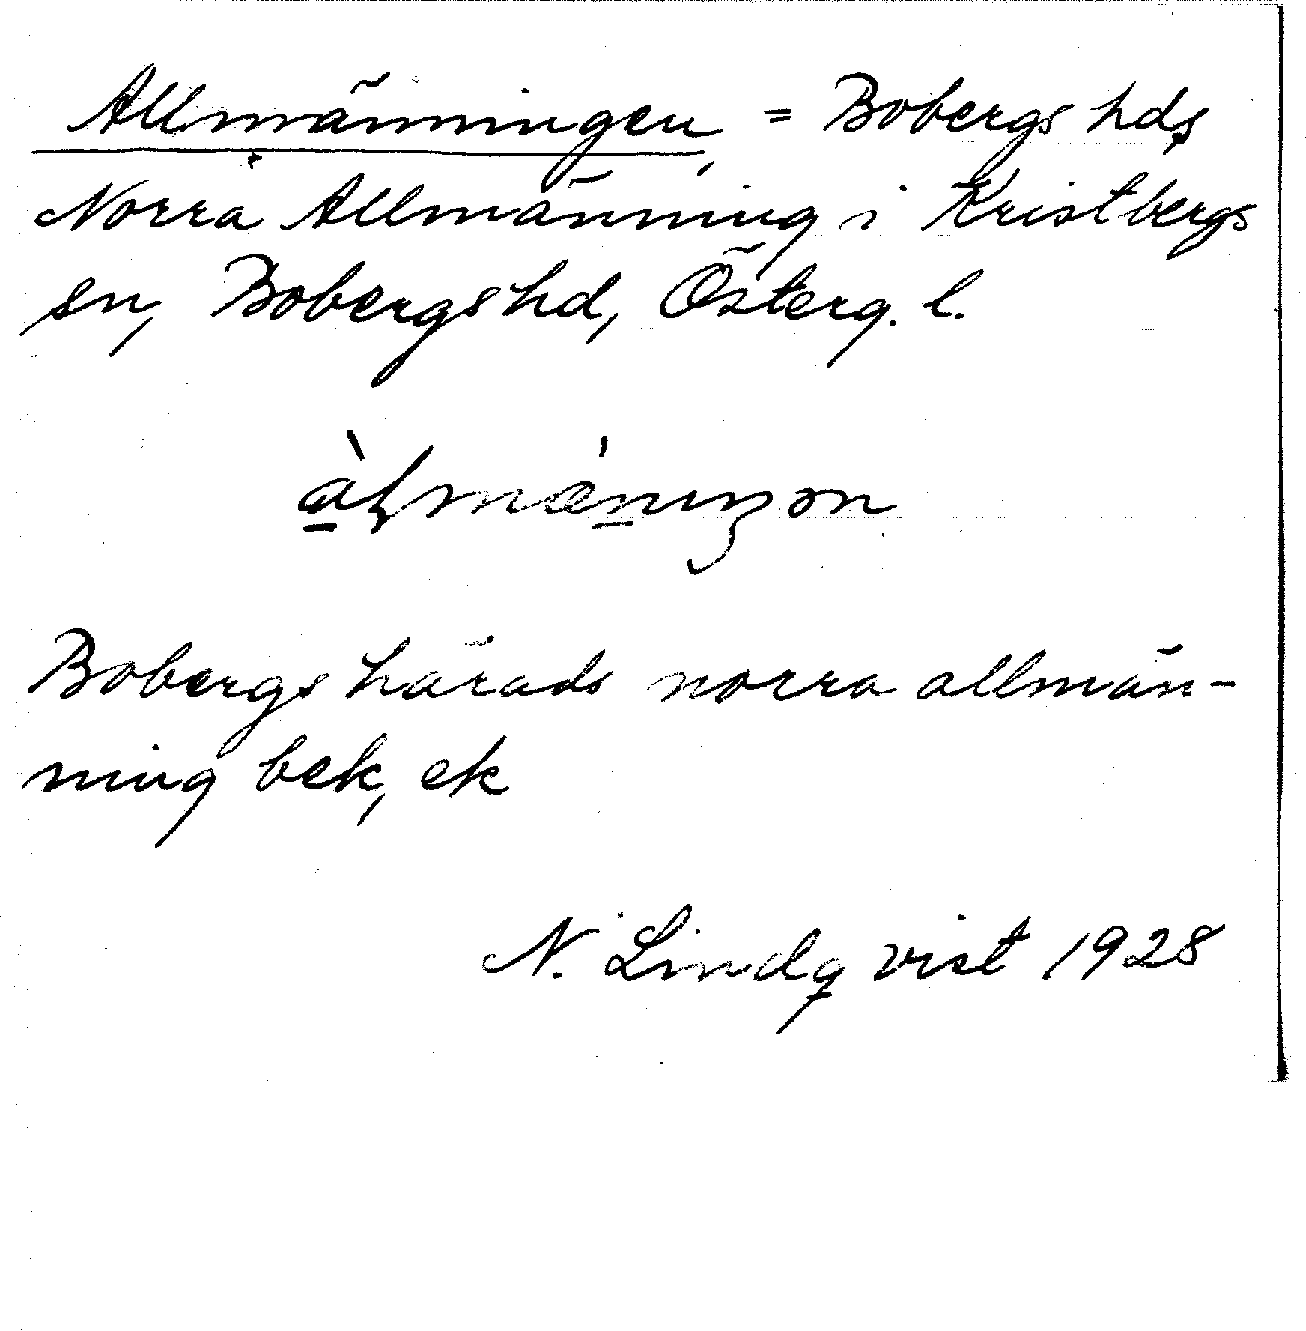 Allmänningen, = Bobergs hds
Norra Allmänning i Kristbergs
sn, Bobergs hd, Österg. l.
Bobergs härads norra allmän-
ning bek, ek
N. Lindqvist 1928